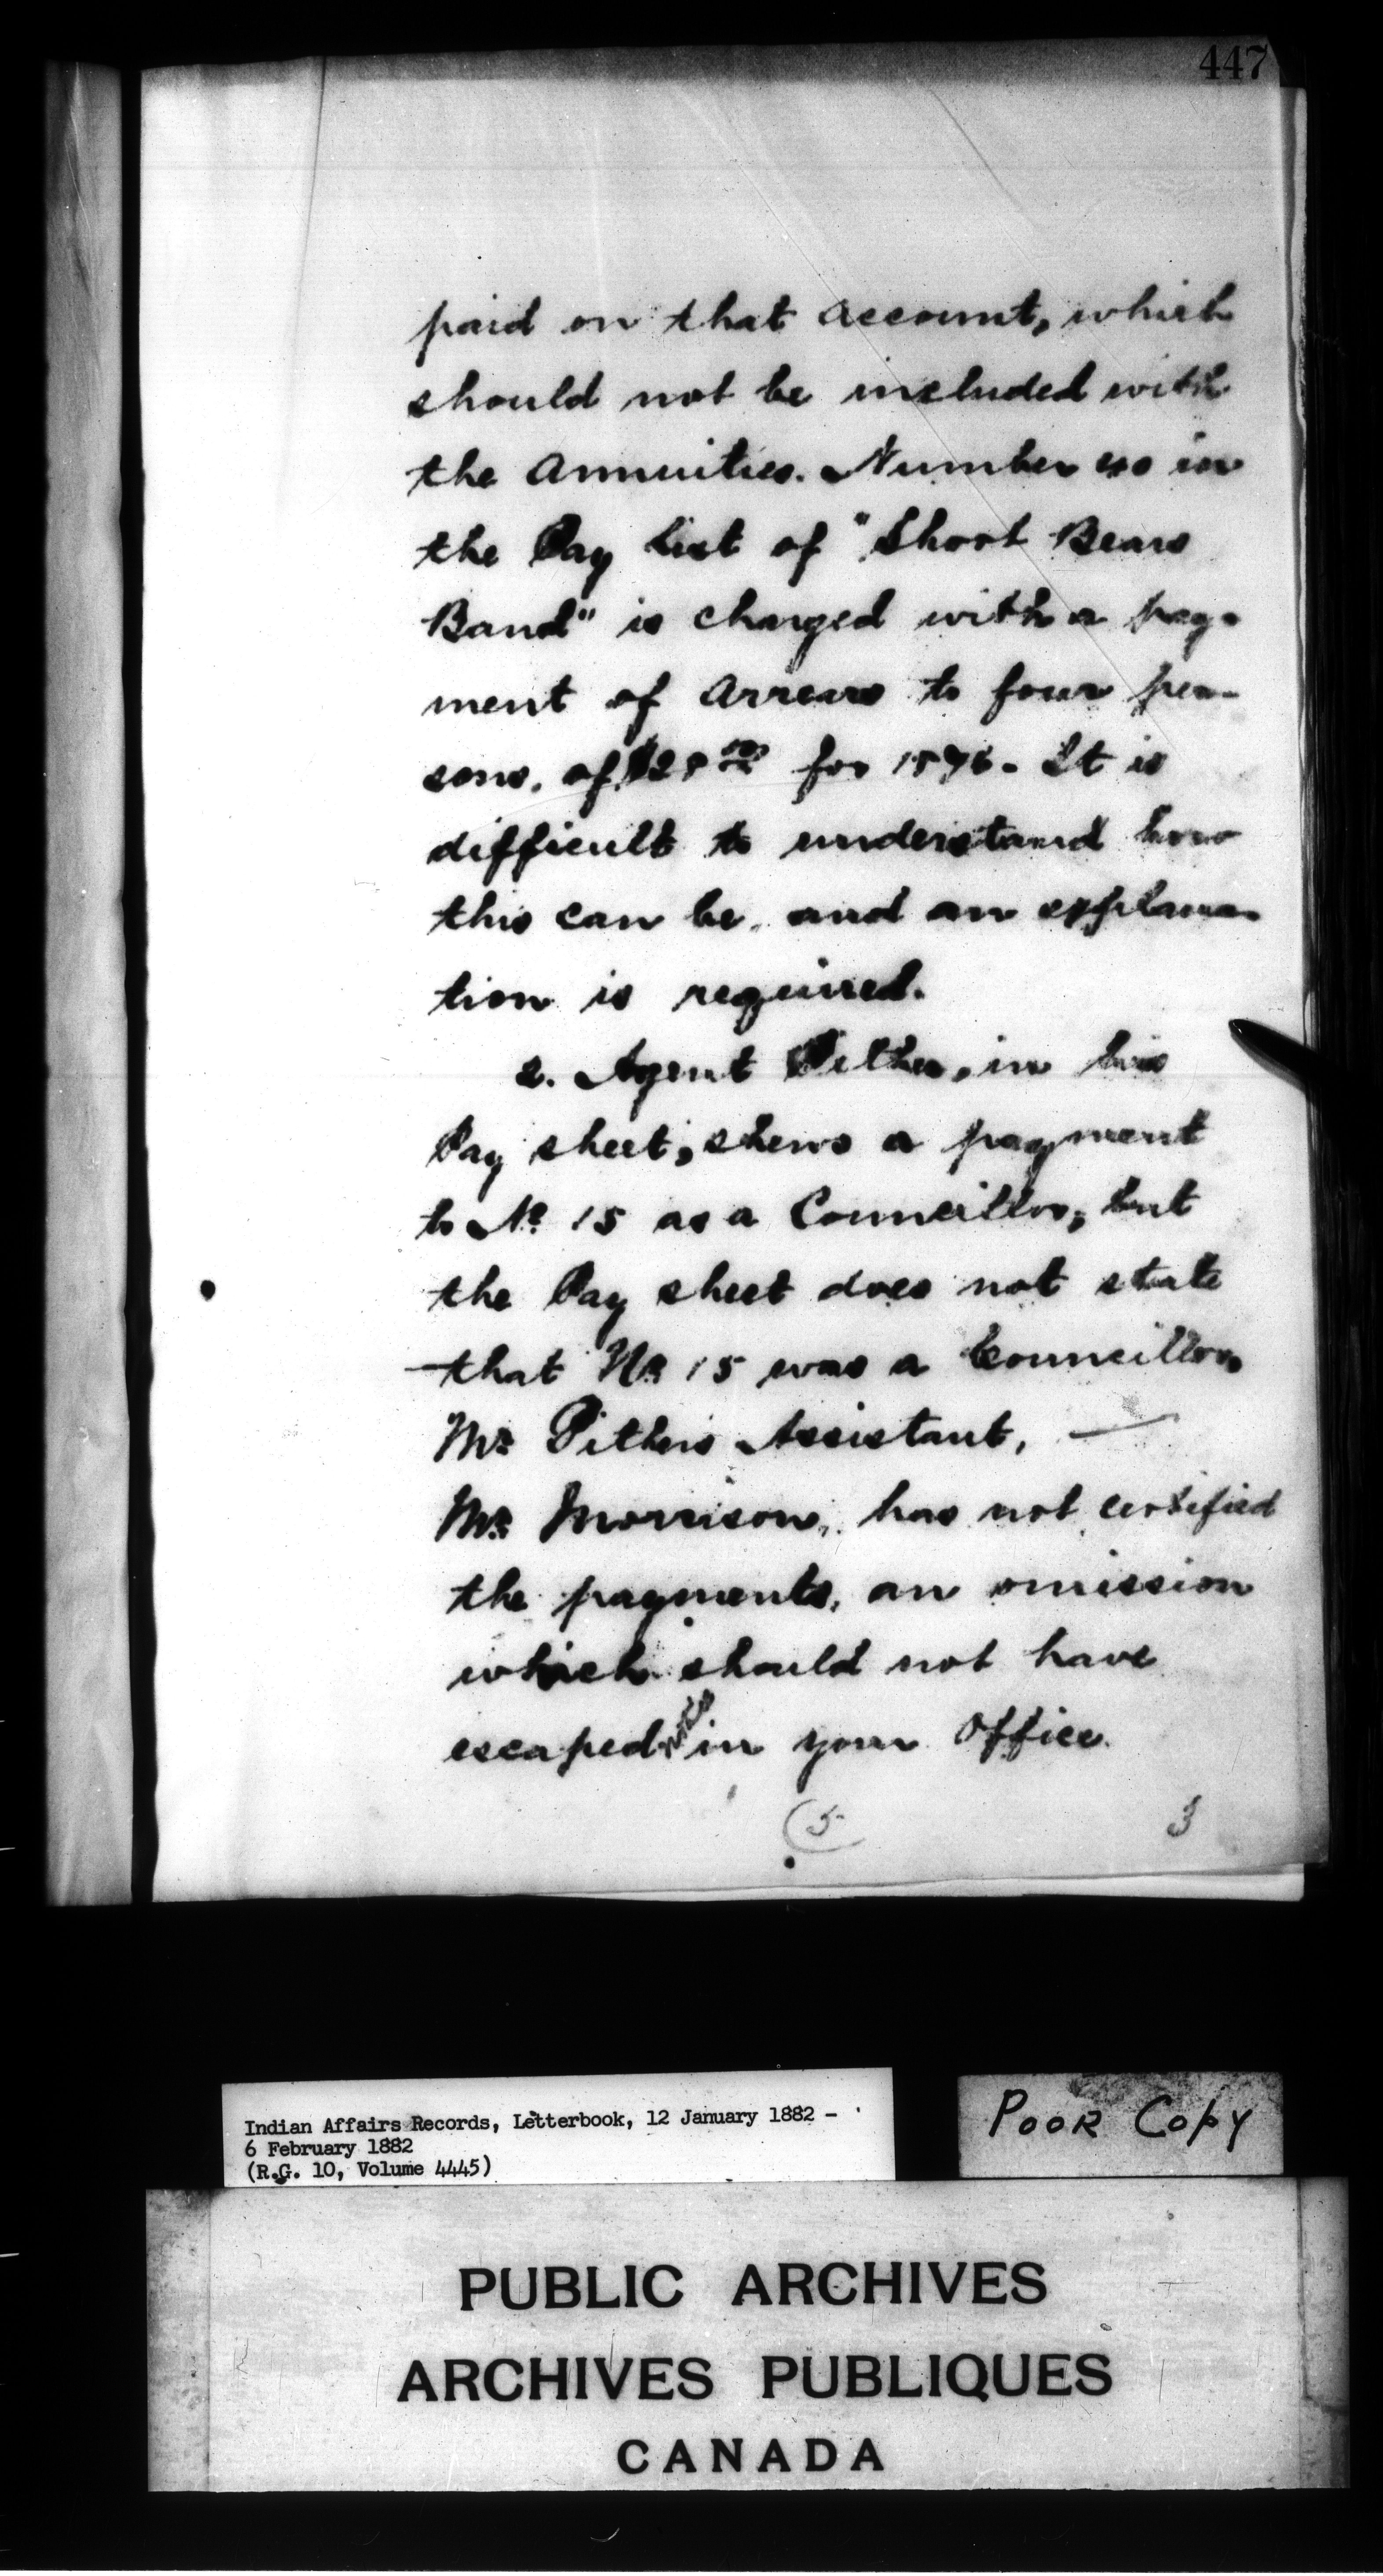 447
paid on that account, which
should not be included with
the Annuities. Number in
the Pay list of "Short Bears
Band" is charged with a pay-
ment of Arrears to four per-
sons, of for It is
difficult to understand how
this can be, and an explana-
tion is required.
2. Agent Pither, in his
Pay sheet, shews a payment
to No. 15 as a Councillor, but
the Pay sheet does not state
that No. 15 was a Councillor,
Mr. Pithers Assistant, —
Mr. Morrison, has not certified
the payments, an omission
which should not have
escaped notice in your Office.
5 3
Indian Affairs Records, Letterbook, 12 January 1882 -
6 February 1882
(R.G. 10, Volume 4445)
POOR COPY
PUBLIC ARCHIVES
ARCHIVES PUBLIQUES
CANADA